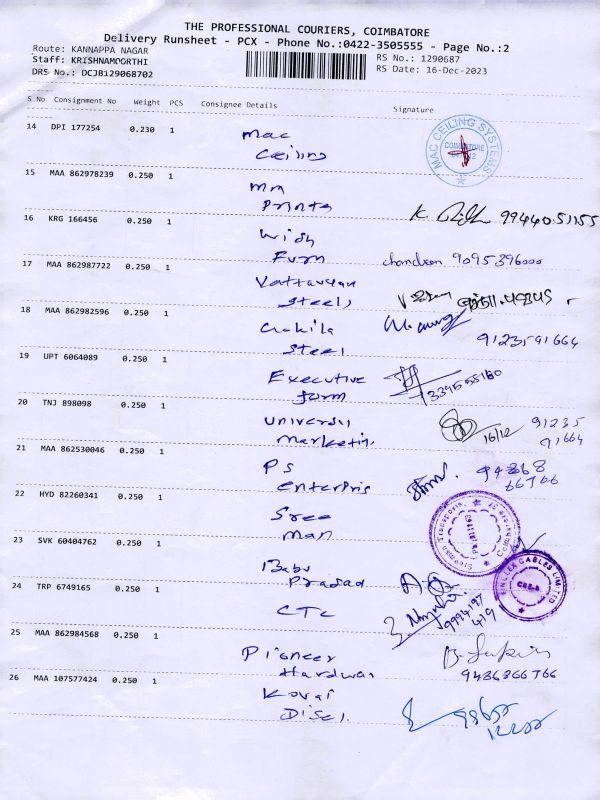 THE PROFESSIONAL COURIERS, COIMBATORE
Delivery Runsheet - PCX - Phone No.:0422-3505555 - Page No.:2
Route: KANNAPPA NAGAR
Staff: KRISHNAMOORTHI
DRS No.: DCJB129068702
RS No.: 1290687
RS Date: 16-Dec-2023
S No Consignment No Weight PCS Consignee Details Signature
14 DPI 177254 0.230 1 Mac Ceiling
MAC CEILING SYSTEMS
COIMBATORE
15 MAA 862978239 0.250 1 MM Prints
99440 51155
16 KRG 166456 0.250 1 Wish Furn
9095396000
17 MAA 862987722 0.250 1 Steels
18 MAA 862982596 0.250 1 Steel
9123591664
19 UPT 6064089 0.250 1 Executive form
20 TNJ 898098 0.250 1 Universal Marketing
16/12
91235 91664
21 MAA 862530046 0.250 1 PS Enterpris
22 HYD 82260341 0.250 1 Sree Man
23 SVK 60404762 0.250 1 Babu Prasad
CABLES LIMITED
24 TRP 6749165 0.250 1 CTC
9994197 419
25 MAA 862984568 0.250 1 Pioneer Hardwar
9486366766
26 MAA 107577424 0.250 1 Kovai Disel